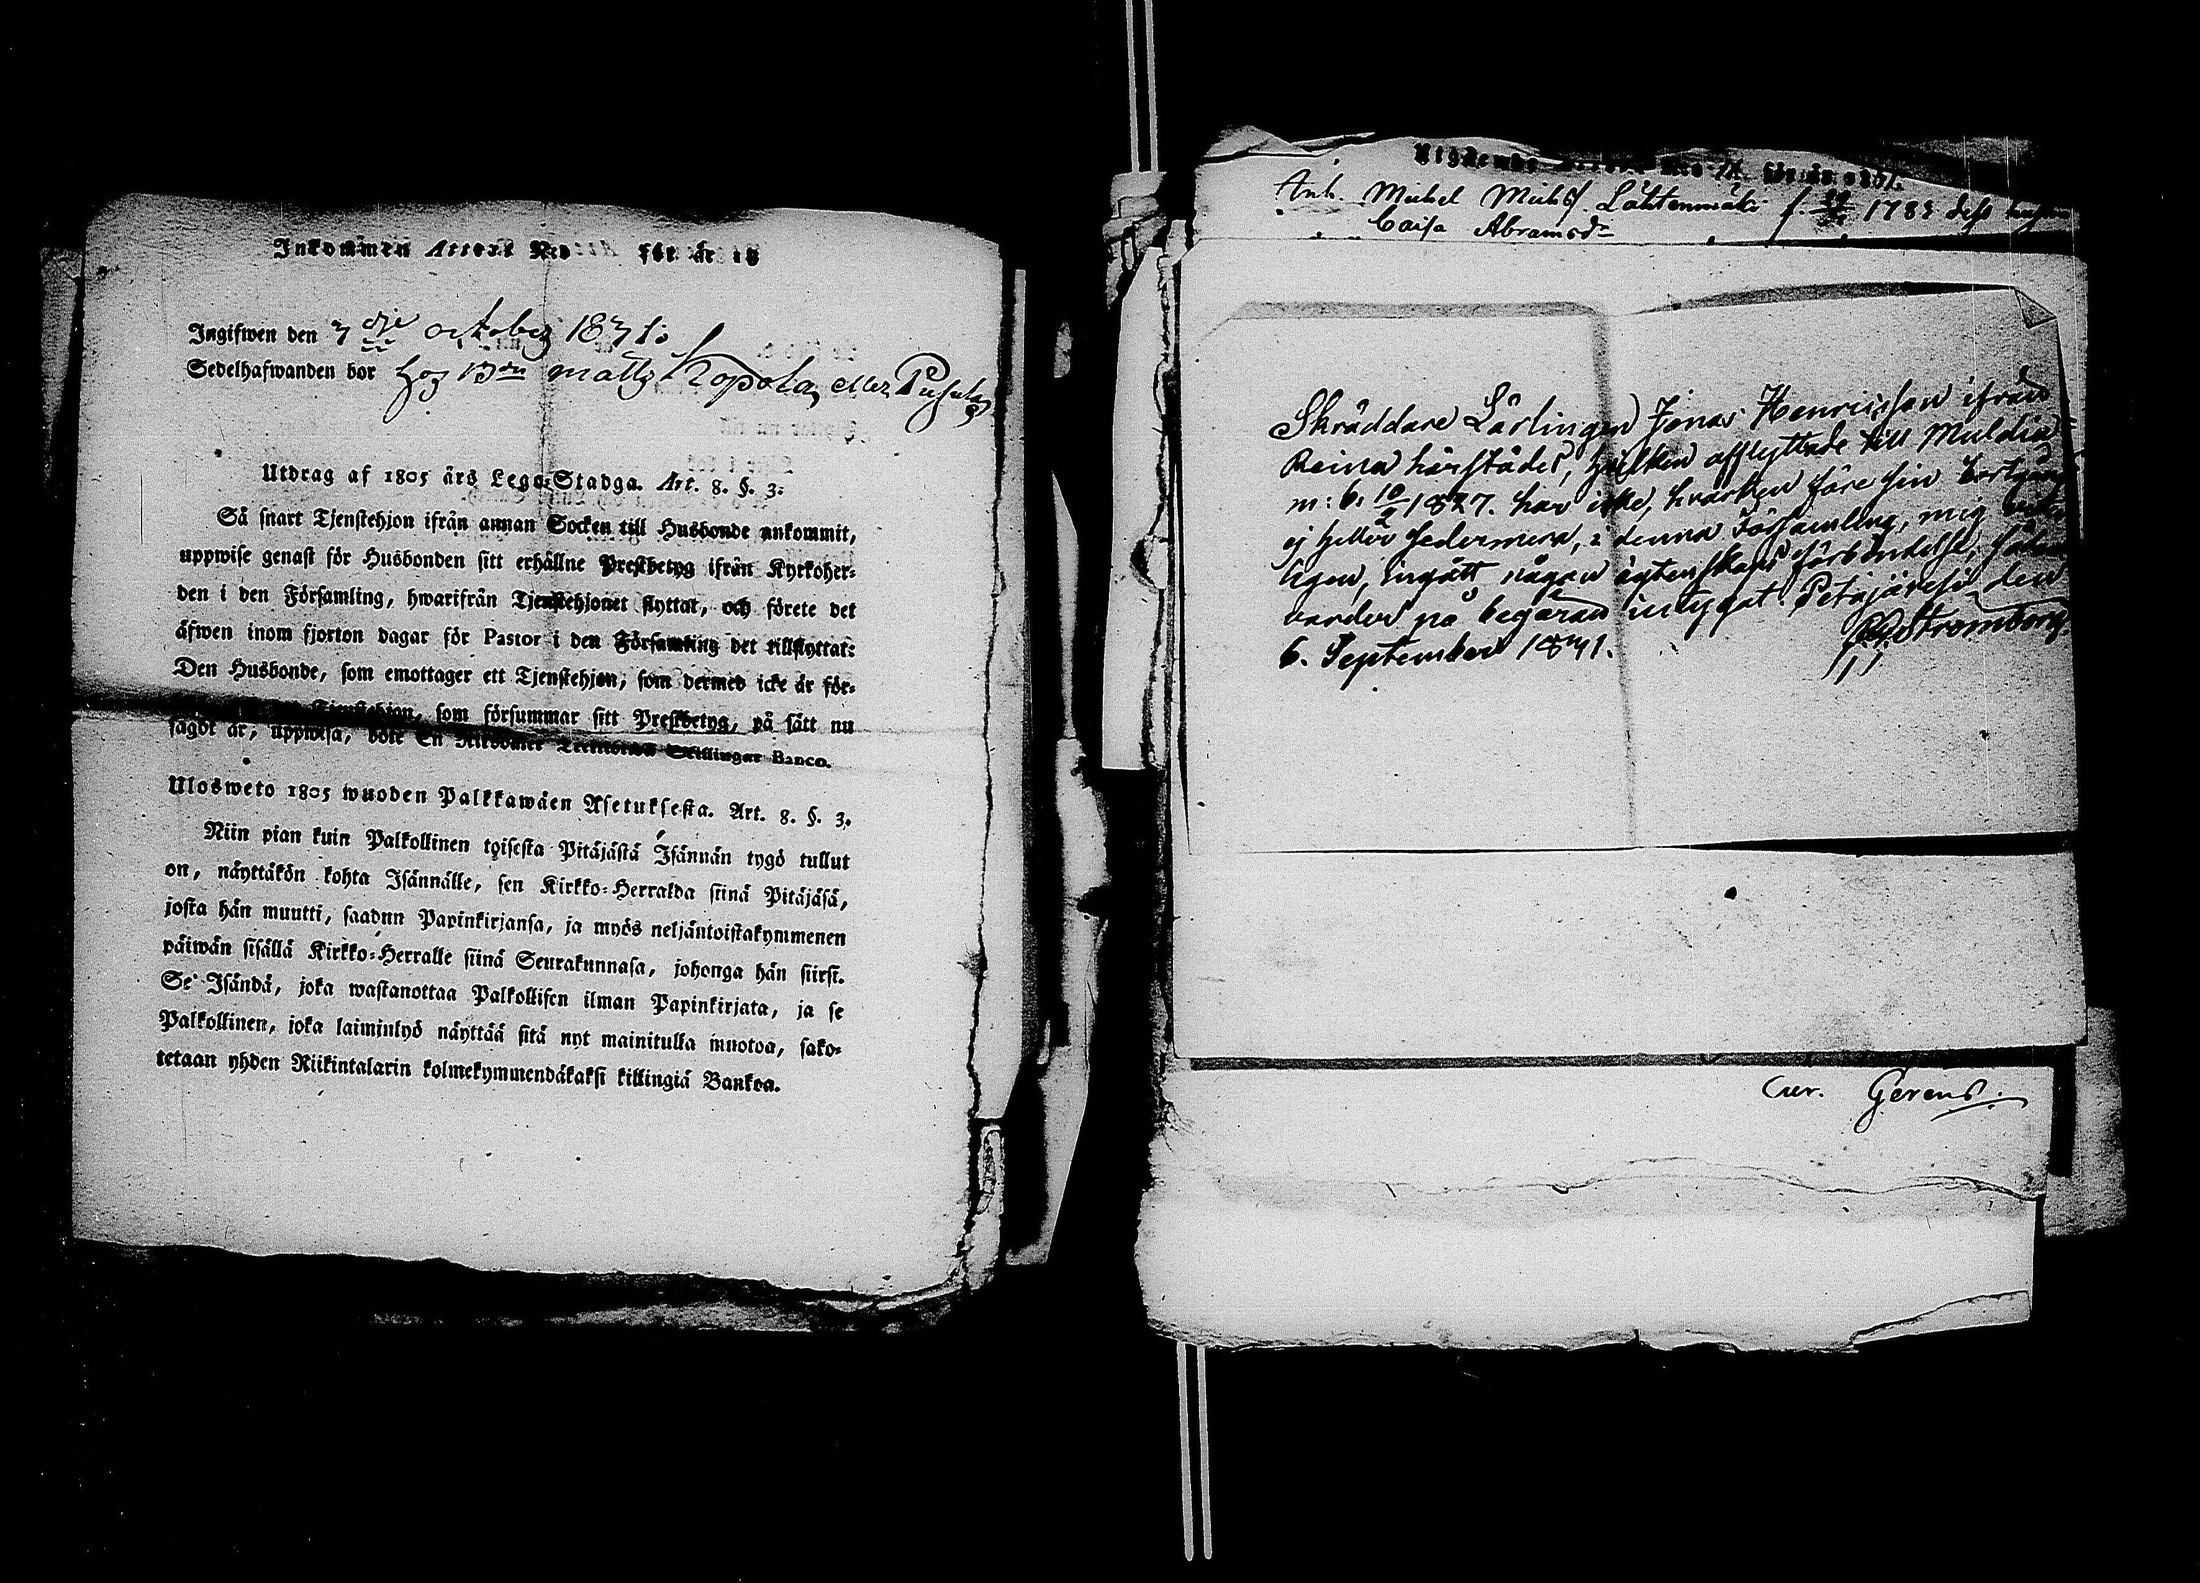 Inkommen Attest N:o för år 18
Ingifwen den 3 dje october 1831:
Sedelhafwanden bor hos Bdn matts Kopola, eller
Utdrag af 1805 års Lego-Stadga. Art. 8. §. 3.
Så snart Tjenstehjon ifrån annan Socken till Husbonde ankommit,
uppwise genast för Husbonden sitt erhållne Prestbetyg ifrån Kyrkoher-
den i den Församling, hwarifrån Tjenstehjonet flyttat, och förete det
äfwen inom fjorton dagar för Pastor i den Församling det tillflyttat:
Den Husbonde, som emottager ett Tjenstehjon, som dermed icke är för-
Tjenstehjon, som försummar sitt Prestbetyg, på sätt nu
sagdt är, uppwisa, böte En Riksdaler Trettiotwå Skillingar Banco.
Ulosweto 1805 wuoden Palkkawäen Asetuksesta. Art. 8. §. 3.
Niin pian kuin Palkollinen toisesta Pitäjästä Isännän tygö tullut
on, näyttäkön kohta Isännälle, sen Kirkko-Herralda siinä Pitäjäsä,
josta hän muutti, saadun Papinkirjansa, ja myös neljäntoistakymmenen
päiwän sisällä Kirkko-Herralle siinä Seurakunnasa, johonga hän siirst.
Se Isändä, joka wastanottaa Palkollisen ilman Papinkirjata, ja se
Palkollinen, joka laiminlyö näyttää sitä nyt mainitulla muotoa, sako-
tetaan yhden Riikintalarin kolmekymmendäkaksi killingiä Bankoa.
för år 1831.
Inh. Michel Michsf Lähtenmäki f. 1783 dess hustru
Caisa Abramsdr
Skräddare Lärlingen Jonas Henricsson ifrån
Reina härstädes, hvilken afflyttade till Muldia
m: b: 10/2 1827. har icke, hvarken före sin bortgång
ej heller sedermera, i denna Församling, mig vet-
ligen, ingått någon ägtenskaps förbindelse, som
varder på begäran intygat. Petäjävesi den
6. September 1831. Stromborg.
Cur. Gerens.